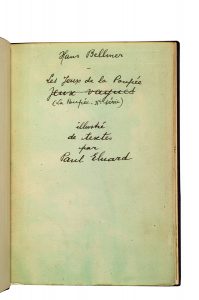 Hans Bellmer
Les Jeux de la Poupée
Jeux vagues
(La Poupée. IIe série)
illustré
de textes
par
Paul Eluard